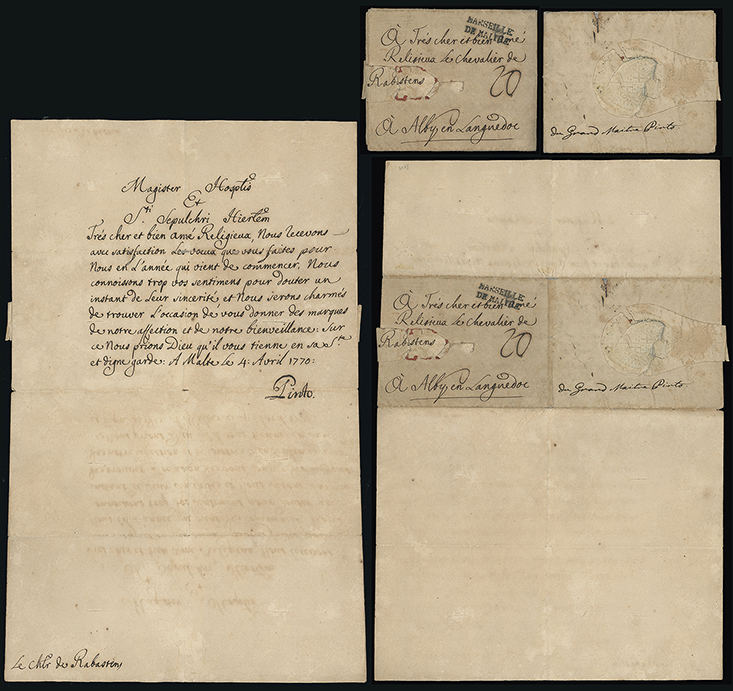 Magister Hosptis
Et
S.ti Sepulchri Hierlem
Très cher et bien amé Religieux, Nous recevons
avec satisfaction Les voeux que vous faites pour
Nous en L'année qui vient de commencer, Nous
connoissons trop vos sentimens pour douter un
instant de Leur sincerité, et Nous serons charmés
de trouver L'occasion de vous donner des marques
de notre affection et de notre bienveillance: Sur
ce Nous prions Dieu qu'il vous tienne en sa S.te
et digne garde: A Malte Le 4: Avril 1770:
Pinto.
Le Chlr de Rabastens
MARSEILLE
DE MALTHE
À Trés cher et bien amé
Religieux Le Chevalier de
Rabastens
20
À Alby en Languedoc
du Grand Maitre Pinto.
MARSEILLE
DE MALTHE
À Trés cher et bien amé
Religieux Le Chevalier de
Rabastens
20
À Alby en Languedoc
du Grand Maitre Pinto.